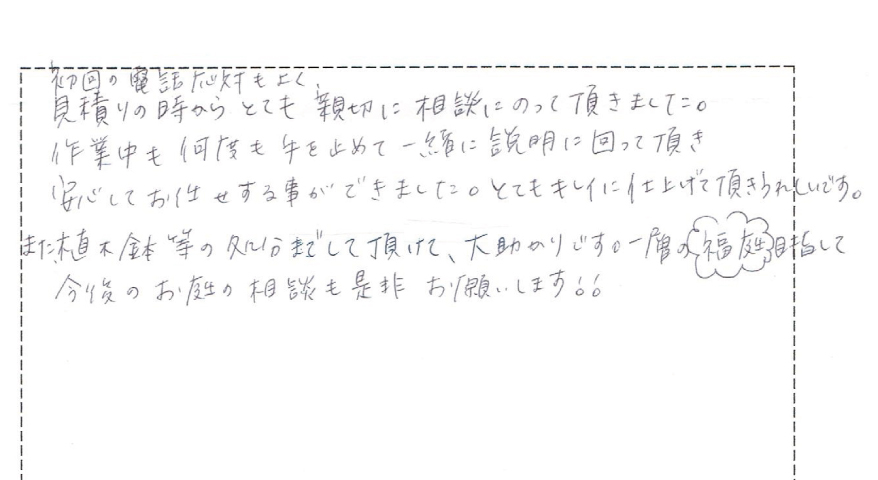 初回の電話応対もよく、
見積りの時からとても親切に相談にのって頂きました。
作業中も何度も手を止めて一緒に説明に回って頂き
安心してお任せする事ができました。とてもキレイに仕上げて頂きうれしいです。
また、植木鉢等の処分までして頂けて、大助かりです。一層の福庭目指して
今後のお庭の相談も是非お願いします!!